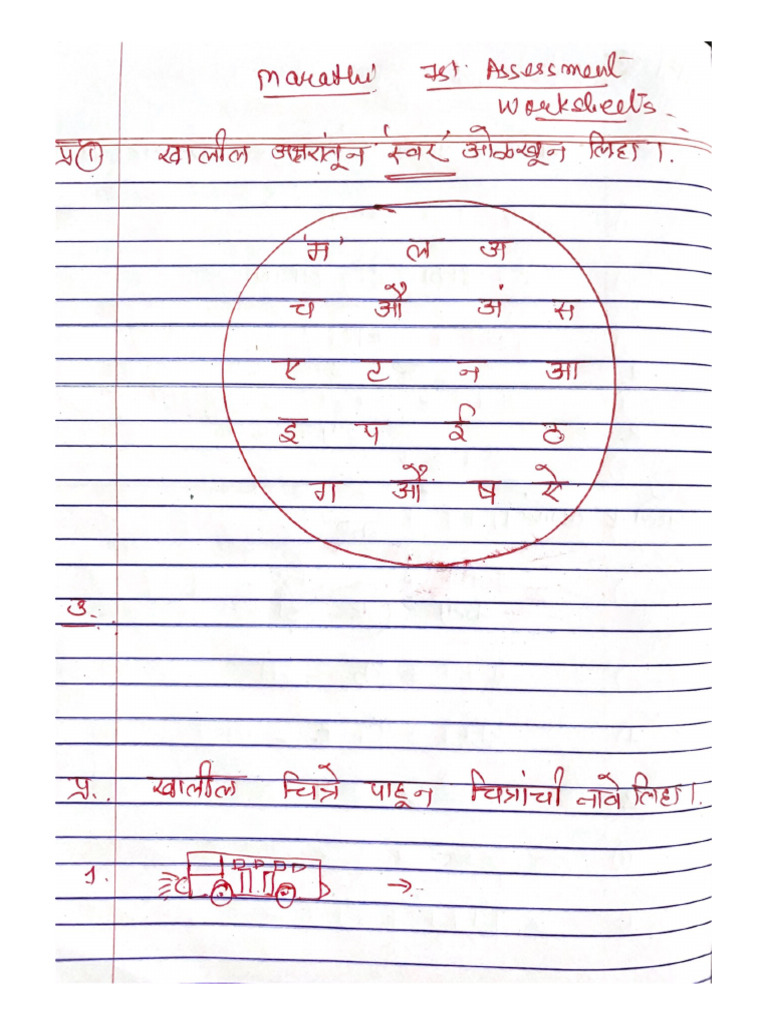 Marathi Ist Assessment
Worksheets.
प्र ① खालील अक्षरांतून 'स्वर' ओळखून लिहा।.
'म' ल अ
च औ अं स
ए ट न आ
इ प ई ठ
ग औ ष ऐ
उ.
प्र.. खालील चित्रे पाहून चित्रांची नावे लिहा।.
1. →